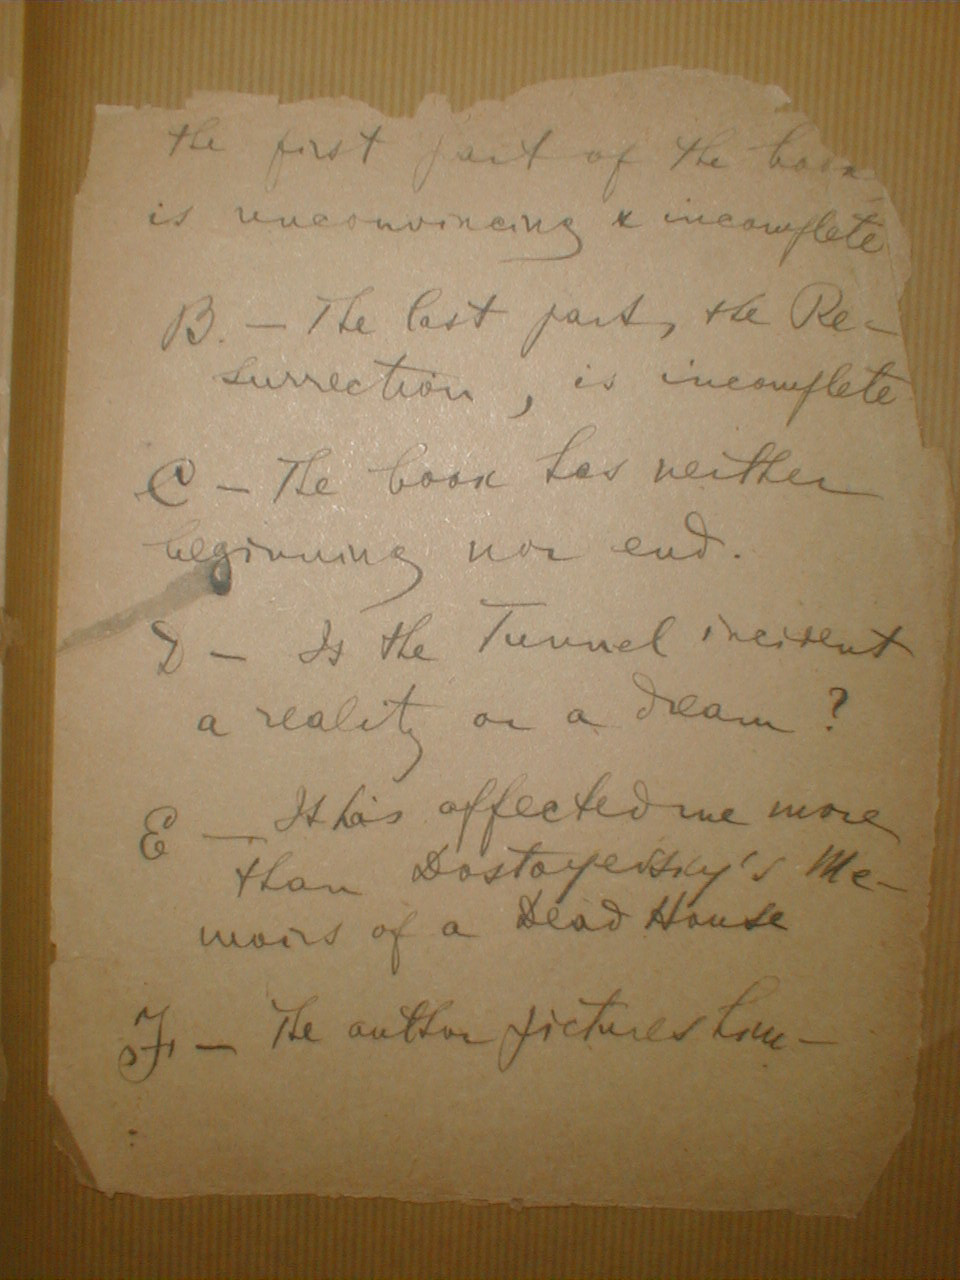 the first part of the book
is unconvincing & incomplete
B. — The last part, the Re-
surrection, is incomplete
C — The book has neither
beginning nor end.
D — Is the Tunnel incident
a reality or a dream?
E — It has affected me more
than Dostoyevsky's Me-
moirs of a Dead House
F — The author pictures him-